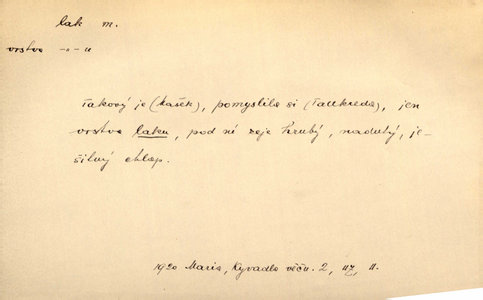 lak m.
vrstva -"- u
Takový je (Hašek), pomyslila si (Tallkreda), jen
vrstva laku, pod ní zeje hrubý, nadutý, je-
šitný chlap.
1920 Maria, Kyvadlo věčn. 2,